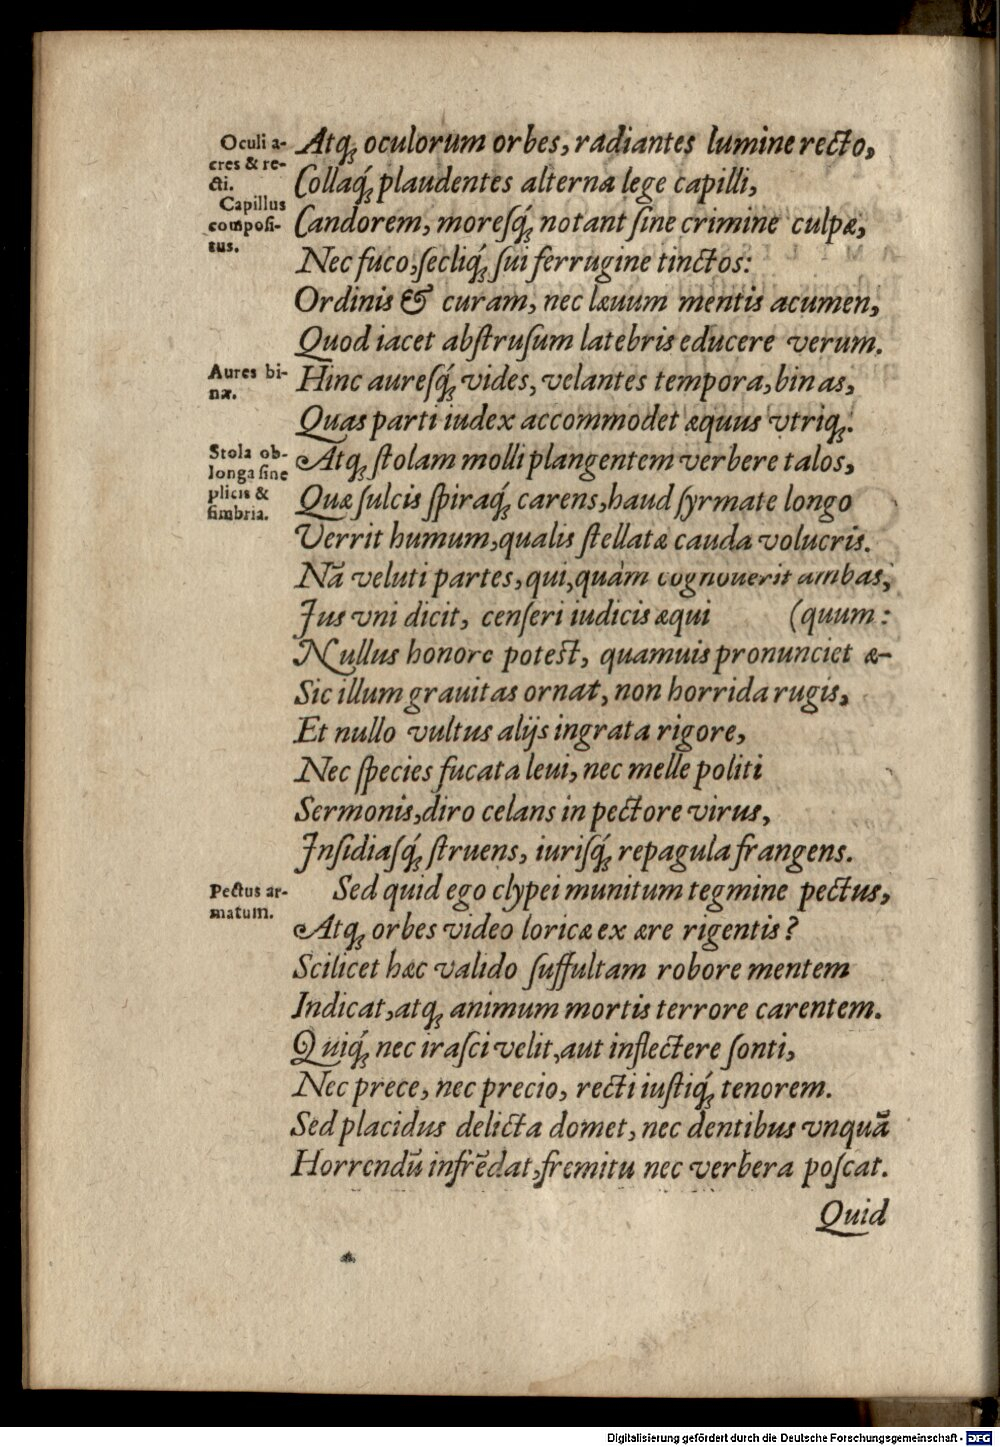 Oculi a-
cres & re-
cti.
Capillus
composi-
tus.
Atq; oculorum orbes, radiantes lumine recto,
Collaq́; plaudentes alterna lege capilli,
Candorem, moresq́; notant sine crimine culpæ,
Nec fuco, secliq́; sui ferrugine tinctos:
Ordinis & curam, nec læuum mentis acumen,
Quod iacet abstrusum latebris educere verum.
Aures bi-
næ.
Hinc auresq́; vides, velantes tempora, binas,
Quas parti iudex accommodet æquus vtriq;.
Stola ob-
longa sine
plicis &
fimbria.
Atq; stolam molli plangentem verbere talos,
Quæ sulcis spiraq́; carens, haud syrmate longo
Verrit humum, qualis stellatæ cauda volucris.
Nā veluti partes, qui, quàm cognouerit ambas,
Jus vni dicit, censeri iudicis æqui (quum:
Nullus honore potest, quamuis pronunciet æ-
Sic illum grauitas ornat, non horrida rugis,
Et nullo vultus alijs ingrata rigore,
Nec species fucata leui, nec melle politi
Sermonis, diro celans in pectore virus,
Jnsidiasq́; struens, iurisq́; repagula frangens.
Pectus ar-
matum.
Sed quid ego clypei munitum tegmine pectus,
Atq; orbes video loricæ ex ære rigentis?
Scilicet hæc valido suffultam robore mentem
Indicat, atq; animum mortis terrore carentem.
Quiq́; nec irasci velit, aut inflectere sonti,
Nec prece, nec precio, recti iustiq́; tenorem.
Sed placidus delicta domet, nec dentibus vnquā
Horrendū infrēdat, fremitu nec verbera poscat.
Quid
Digitalisierung gefördert durch die Deutsche Forschungsgemeinschaft - DFG